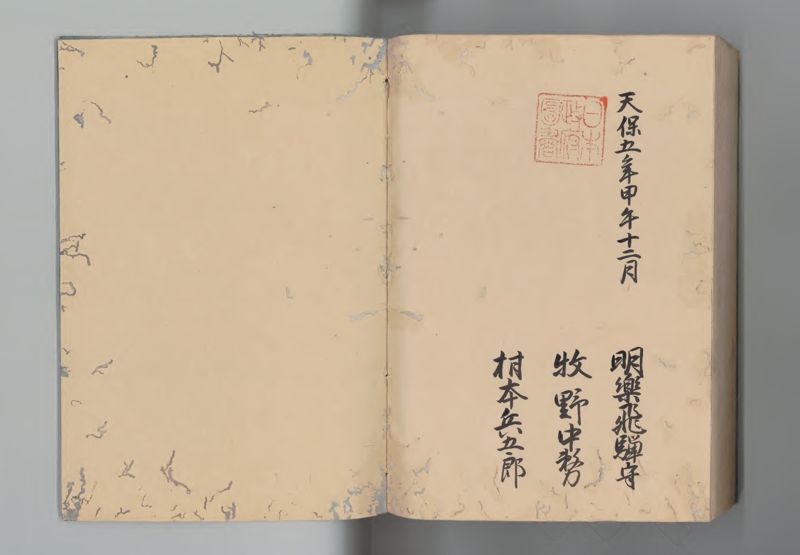 天保五年甲午十二月
日本
政府
圖書
明樂飛驒守
牧野中務
村本兵五郎